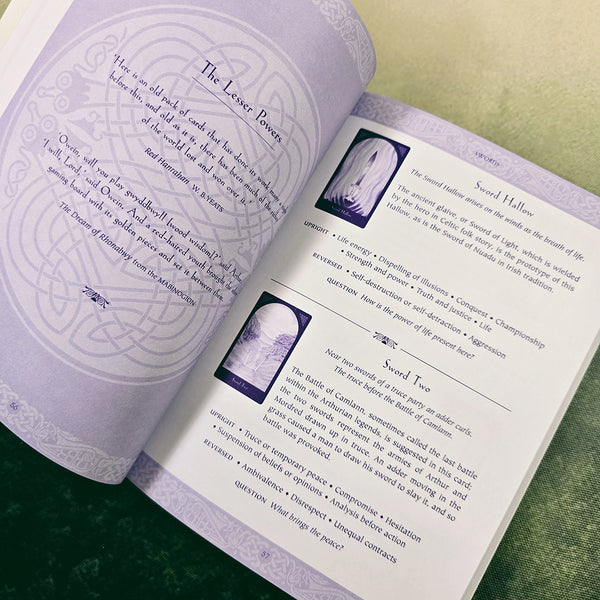 The Lesser Powers
'Here is an old pack of cards that has done its work many a day
before this, and old as it is, there has been much of the riches
of the world lost and won over it.'
Red Hanrahan, W. B.YEATS
'Owein, will you play gwyddbwyll [wood wisdom]?' said Arthur.
'I will, Lord,' said Owein. And a red-haired youth brought the
gaming board with its golden pieces and set it between them.
The Dream of Rhonabwy from the MABINOGION
56
SWORDS
Sword Hallow
Sword Hallow
The Sword Hallow arises on the winds as the breath of life.
The ancient glaive, or Sword of Light, which is wielded
by the hero in Celtic folk story, is the prototype of this
Hallow, as is the Sword of Nuadu in Irish tradition.
UPRIGHT • Life energy • Dispelling of illusions • Conquest • Championship
• Strength and power • Truth and justice • Life
REVERSED • Self-destruction or self-detraction • Aggression
QUESTION How is the power of life present here?
Sword Two
Sword Two
Near two swords of a truce party an adder curls.
The truce before the Battle of Camlann.
The Battle of Camlann, sometimes called the last battle
within the Arthurian legends, is suggested in this card;
the two swords represent the armies of Arthur and
Mordred drawn up in truce. An adder moving in the
grass caused a man to draw his sword to slay it, and so
battle was provoked.
UPRIGHT • Truce or temporary peace • Compromise • Hesitation
• Suspension of beliefs or opinions • Analysis before action
REVERSED • Ambivalence • Disrespect • Unequal contracts
QUESTION What brings the peace?
57